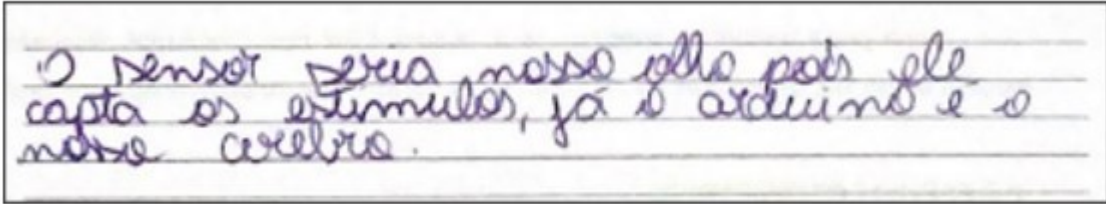 O sensor seria nosso olho pois ele
capta os estimulos, já o arduino é o
nosso cerebro.